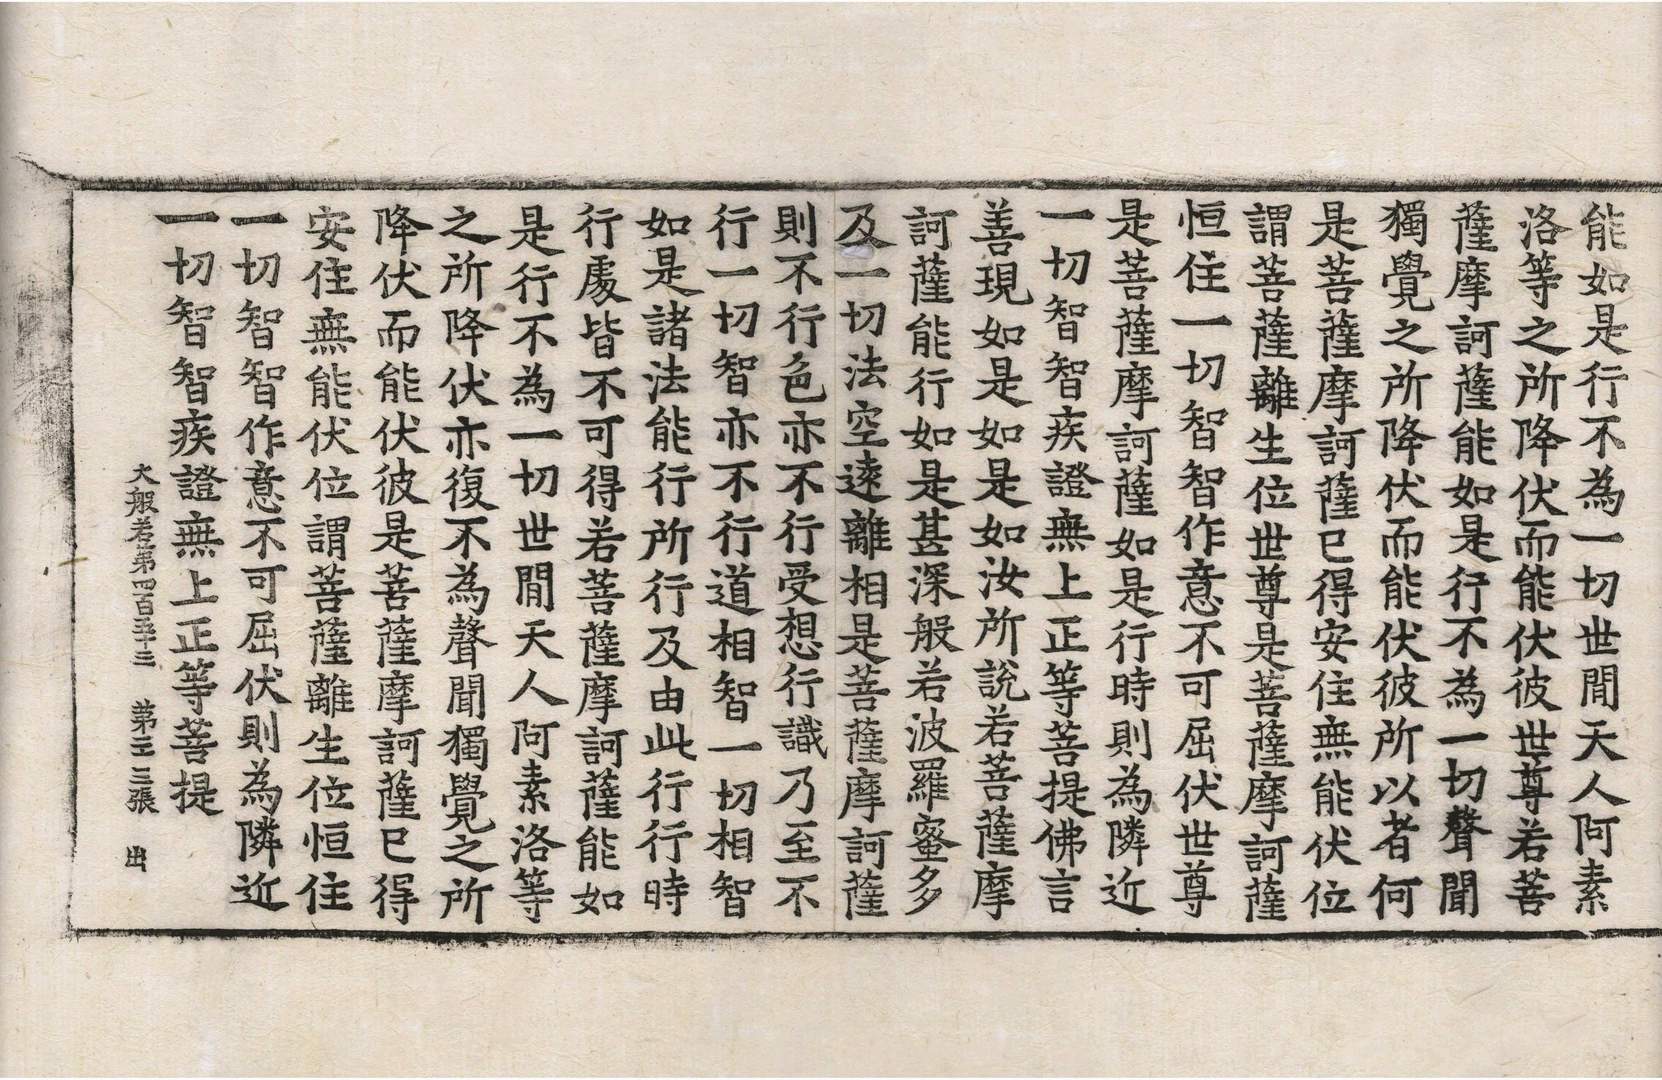 能如是行不為一切世間天人阿素
洛等之所降伏而能伏彼世尊若菩
薩摩訶薩能如是行不為一切聲聞
獨覺之所降伏而能伏彼所以者何
是菩薩摩訶薩已得安住無能伏位
謂菩薩離生位世尊是菩薩摩訶薩
恒住一切智智作意不可屈伏世尊
是菩薩摩訶薩如是行時則為隣近
一切智智疾證無上正等菩提佛言
善現如是如是如汝所說若菩薩摩
訶薩能行如是甚深般若波羅蜜多
及一切法空遠離相是菩薩摩訶薩
則不行色亦不行受想行識乃至不
行一切智亦不行道相智一切相智
如是諸法能行所行及由此行行時
行處皆不可得若菩薩摩訶薩能如
是行不為一切世間天人阿素洛等
之所降伏亦復不為聲聞獨覺之所
降伏而能伏彼是菩薩摩訶薩已得
安住無能伏位謂菩薩離生位恒住
一切智智作意不可屈伏則為隣近
一切智智疾證無上正等菩提
大般若第四百五十三 第二十三張 出